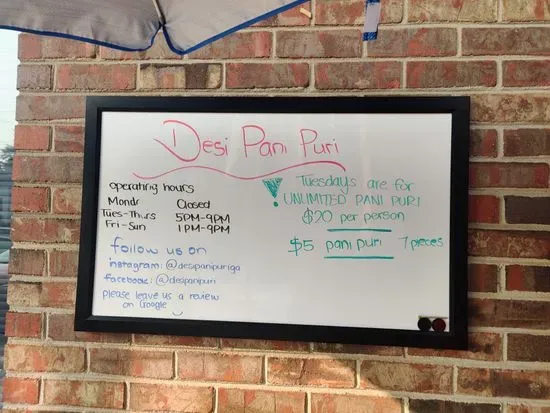 Desi Pani Puri
operating hours
Mondr Closed
Tues-Thurs 5PM-9PM
Fri-Sun 1PM-9PM
follow us on
instagram: @desipanipuriga
facebook: @desipanipuri
please leave us a review
on Google
! Tuesdays are for
UNLIMITED PANI PURI
$20 per person
$5 pani puri 7 pieces